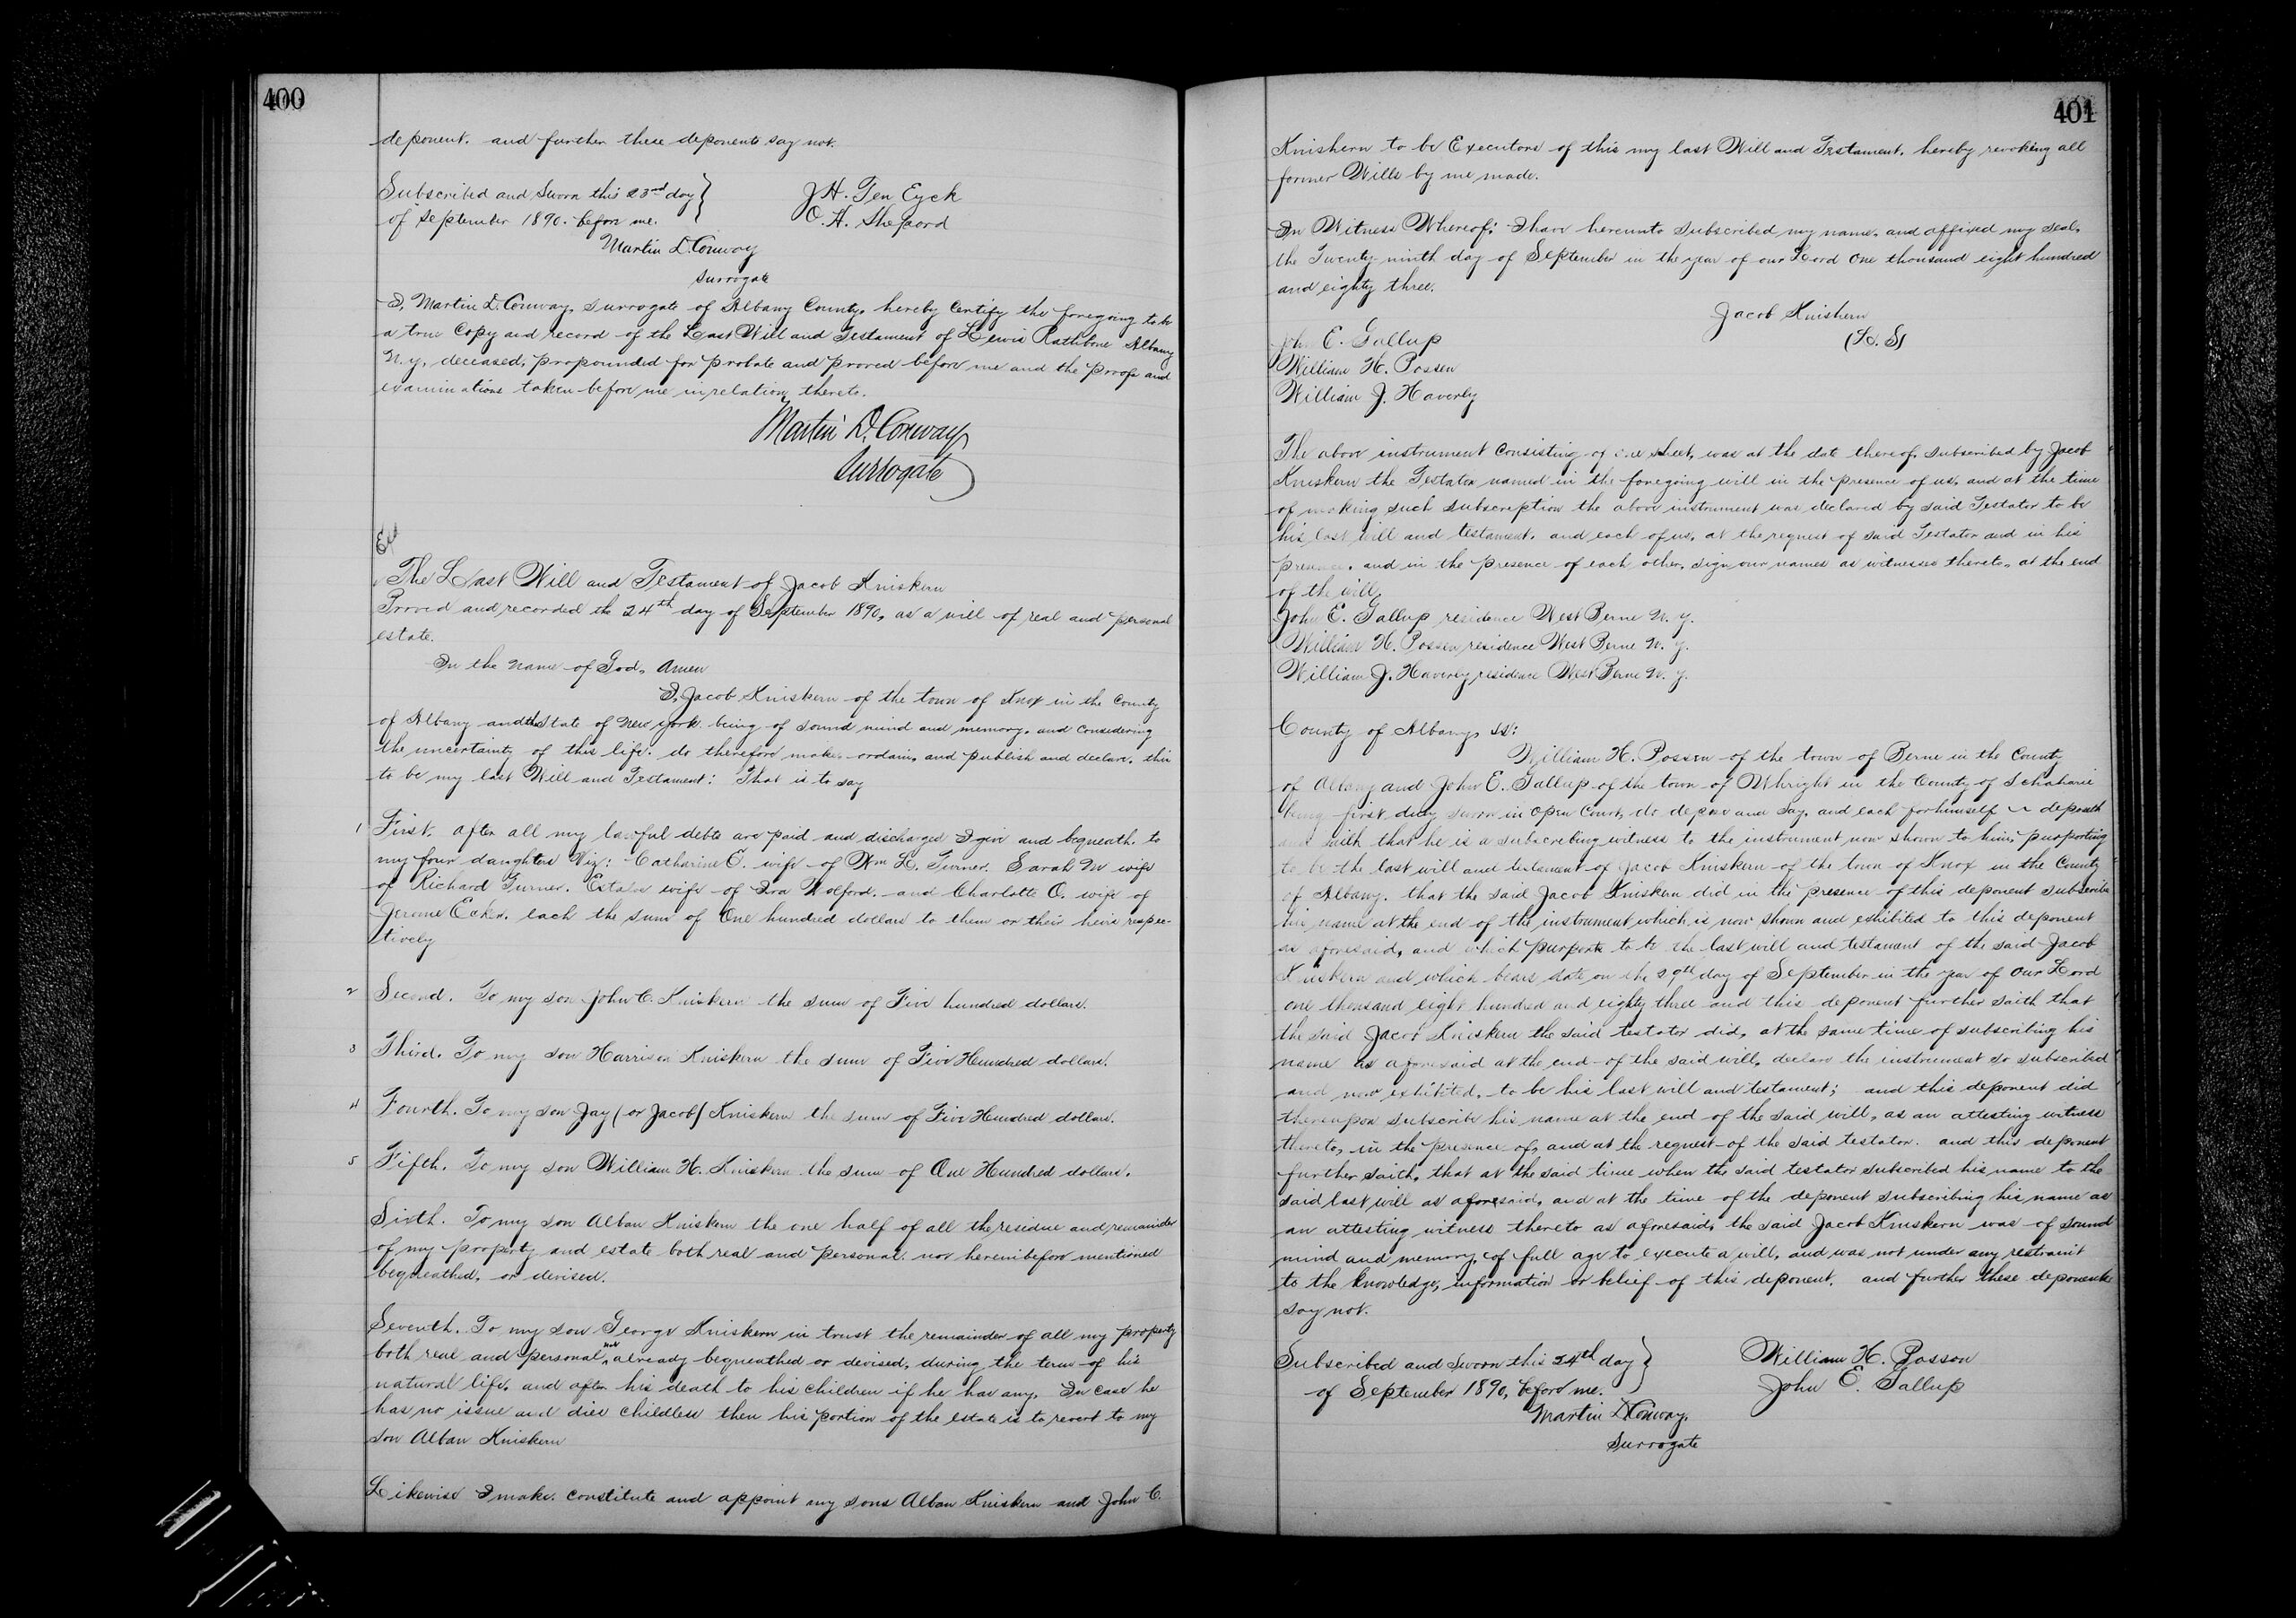 400
deponent. and further these deponents say not.
Subscribed and Sworn this 23rd day
of September 1890. before me.
J H. Ten Eyck
O. H. Shepard
Martin D. Conway
Surrogate
I, Martin D. Conway, Surrogate of Albany County, hereby Certify the foregoing to be
a true Copy and record of the Last Will and Testament of Lewis Rathbone Albany
N.Y, deceased, propounded for probate and proved before me and the proofs and
examinations taken before me in relation thereto.
Martin D. Conway
Surrogate
The Last Will and Testament of Jacob Kniskern
Proved and recorded the 24th day of September 1890, as a will of real and personal
estate.
In the Name of God, Amen
I, Jacob Kniskern of the town of Knox in the County
of Albany and the State of New York being of sound mind and memory, and Considering
the uncertainty of this life. do therefore make, ordain, and publish and declare, this
to be my last Will and Testament: That is to say
1 First, after all my lawful debts are paid and discharged I give and bequeath to
my four daughters Viz: Catharine E. wife of Wm L. Turner. Sarah M wife
of Richard Turner. wife of Ira Wolford. and Charlotte O. wife of
Jerome Ecker. each the sum of One hundred dollars to them or their heirs respec-
tively
2 Second. To my son John C. Kniskern the sum of Five hundred dollars.
3 Third. To my son Harrison Kniskern the sum of Five Hundred dollars.
4 Fourth. To my son Jay (or Jacob) Kniskern the sum of Five Hundred dollars.
5 Fifth. To my son William H. Kniskern the sum of One Hundred dollars.
Sixth. To my son Alban Kniskern the one half of all the residue and remainder
of my property and estate both real and personal nor hereinbefore mentioned
bequeathed, or devised.
Seventh. To my son George Kniskern in trust the remainder of all my property
both real and personal not already bequeathed or devised, during the term of his
natural life, and after his death to his children if he has any. In case he
has no issue and dies childless then his portion of the estate is to revert to my
son Alban Kniskern
Likewise I make. constitute and appoint my sons Alban Kniskern and John C.
401
Kniskern to be Executors of this my last Will and Testament. hereby revoking all
former Wills by me made.
In Witness Whereof: I have hereunto subscribed my name, and affixed my seal,
the Twenty-ninth day of September in the year of our Lord One thousand eight hundred
and eighty three.
Jacob Kniskern
(L. S)
John E. Gallup
William H. Possen
William J. Haverly
The above instrument Consisting of one sheet, was at the date thereof, subscribed by Jacob
Kniskern the Testator named in the foregoing will in the presence of us, and at the time
of making such subscription the above instrument was declared by said Testator to be
his last will and testament. and each of us, at the request of said Testator and in his
presence. and in the presence of each other, sign our names as witnesses thereto, at the end
of the will,
John E. Gallup residence West Berne N. Y.
William H. Possen residence West Berne N. Y.
William J. Haverly residence West Berne N. Y.
County of Albany, SS:
William H. Possen of the town of Berne in the County
of Albany and John E. Gallup of the town of Whright in the County of Schoharie
being first duly sworn in Open Court, do depose and Say, and each for himself deposeth
and saith that he is a subscribing witness to the instrument now shown to him, purporting
to be the last will and testament of Jacob Kniskern of the town of Knox in the County
of Albany. that the said Jacob Kniskern did in the presence of this deponent subscribe
his name at the end of the instrument which is now shown and exhibited to this deponent
as aforesaid, and which purports to be the last will and testament of the said Jacob
Kniskern and which bears date on the 29th day of September in the year of our Lord
one thousand eight hundred and eighty three and this deponent further saith that
the said Jacob Kniskern the said testator did, at the same time of subscribing his
name as aforesaid at the end of the said will, declare the instrument so subscribed
and now exhibited, to be his last will and testament; and this deponent did
thereupon subscribe his name at the end of the said will, as an attesting witness
thereto, in the presence of, and at the request of the said testator. and this deponent
further saith, that at the said time when the said testator subscribed his name to the
said last will as aforesaid, and at the time of the deponent subscribing his name as
an attesting witness thereto as aforesaid, the said Jacob Kniskern was of sound
mind and memory, of full age to execute a will, and was not under any restraint
to the knowledge, information or belief of this deponent. and further these deponents
say not.
Subscribed and Sworn this 24th day
of September 1890, before me.
William H. Posson
John E. Gallup
Martin D Conway,
Surrogate